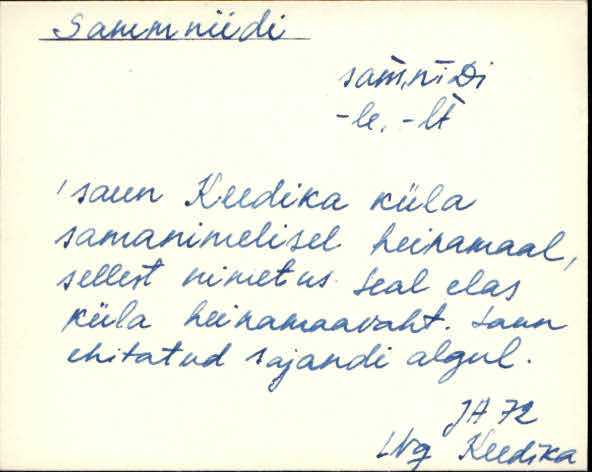 Sammniidi
sam̄,nīDi
-le, -lt
'saun Keedika küla
samanimelisel heinamaal,
sellest nimetus. Seal elas
küla heinamaavaht. Saun
ehitatud sajandi algul.
JA 72
Nvg Keedika